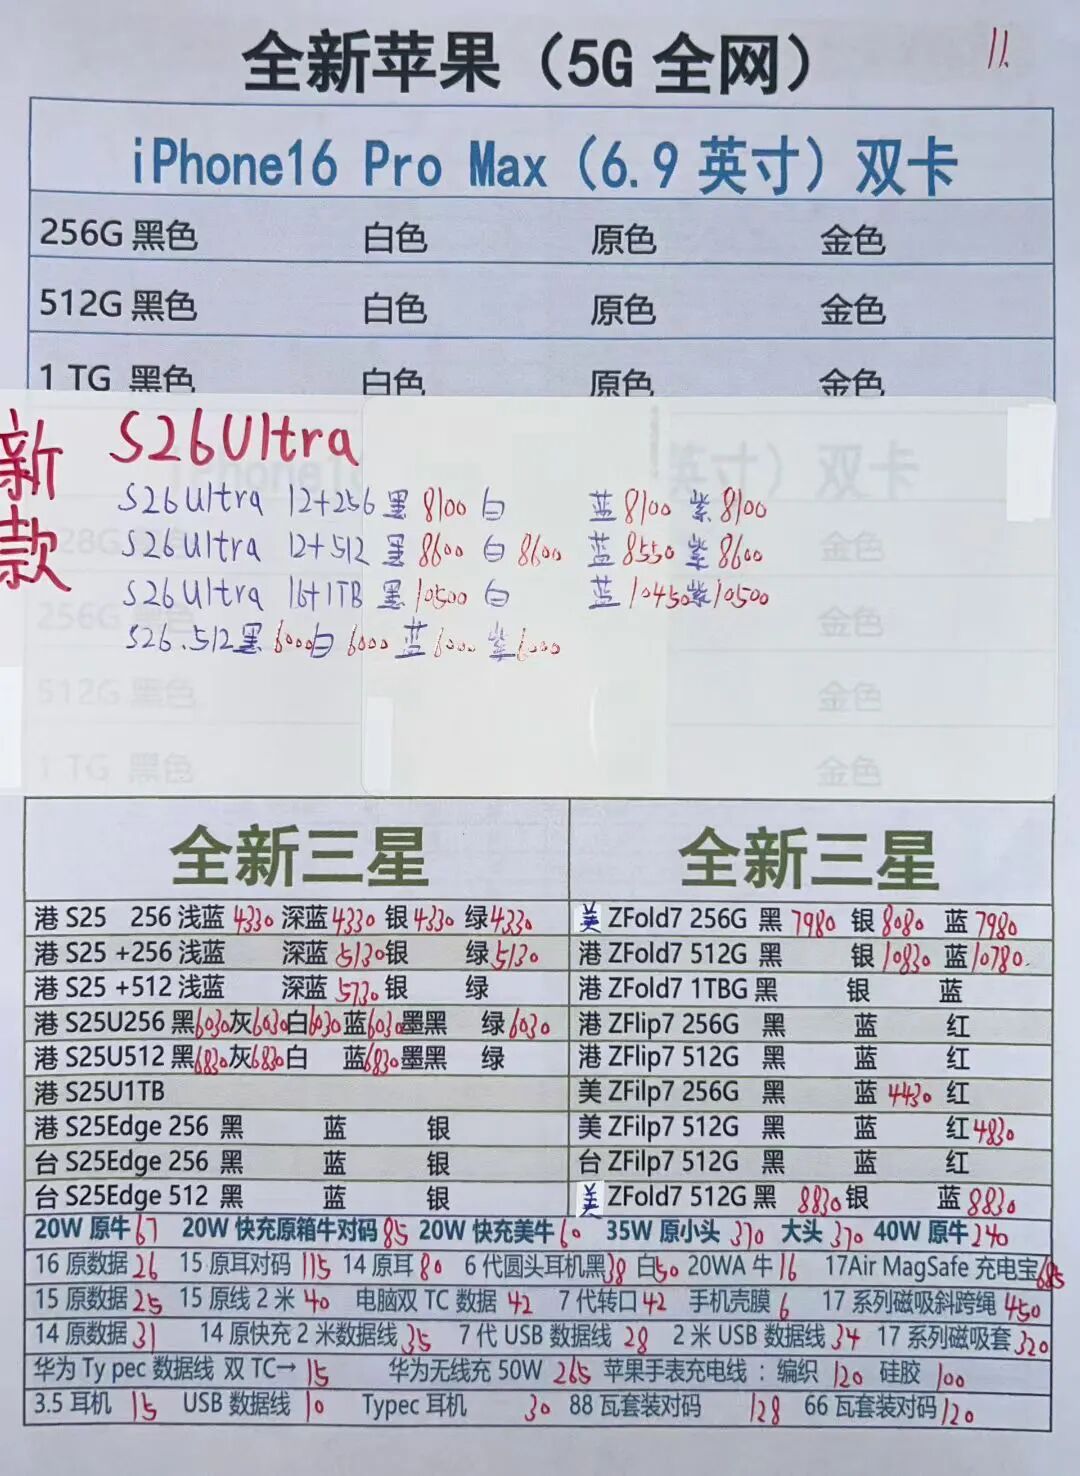 全新苹果（5G 全网） 11.
iPhone16 Pro Max（6.9 英寸）双卡
256G 黑色 白色 原色 金色
512G 黑色 白色 原色 金色
1 TG 黑色 白色 原色 金色
新款 S26Ultra
英寸）双卡
S26Ultra 12+256 黑 8100 白 蓝 8100 紫 8100
S26Ultra 12+512 黑 8600 白 8600 蓝 8550 紫 8600
128G 金色
S26Ultra 16+1TB 黑 10500 白 蓝 10450 紫 10500
256G 金色
S26.512 黑 6000 白 6000 蓝 6000 紫 6000
512G 黑色 金色
1 TG 黑色 金色
全新三星 全新三星
港 S25 256 浅蓝 4330 深蓝 4330 银 4330 绿 4330 美 ZFold7 256G 黑 7980 银 8080 蓝 7980
港 S25 +256 浅蓝 深蓝 5130 银 绿 5130 港 ZFold7 512G 黑 银 10830 蓝 10780.
港 S25 +512 浅蓝 深蓝 5730 银 绿 港 ZFold7 1TBG 黑 银 蓝
港 S25U256 黑 6030 灰 6030 白 6030 蓝 6030 墨黑 绿 6030 港 ZFlip7 256G 黑 蓝 红
港 S25U512 黑 6830 灰 6830 白 蓝 6830 墨黑 绿 港 ZFlip7 512G 黑 蓝 红
港 S25U1TB 美 ZFilp7 256G 黑 蓝 4430 红
港 S25Edge 256 黑 蓝 银 美 ZFilp7 512G 黑 蓝 红 4830
台 S25Edge 256 黑 蓝 银 台 ZFilp7 512G 黑 蓝 红
台 S25Edge 512 黑 蓝 银 美 ZFold7 512G 黑 8830 银 蓝 8830
20W 原牛 67 20W 快充原箱牛对码 85 20W 快充美牛 60 35W 原小头 370 大头 370 40W 原牛 240
16 原数据 26 15 原耳对码 115 14 原耳 80 6 代圆头耳机黑 38 白 50 20WA 牛 16 17Air MagSafe 充电宝 685
15 原数据 25 15 原线 2 米 40 电脑双 TC 数据 42 7 代转口 42 手机壳膜 6 17 系列磁吸斜跨绳 450
14 原数据 31 14 原快充 2 米数据线 35 7 代 USB 数据线 28 2 米 USB 数据线 34 17 系列磁吸套 320
华为 Ty pec 数据线 双 TC→ 15 华为无线充 50W 265 苹果手表充电线 ： 编织 120 硅胶 100
3.5 耳机 15 USB 数据线 10 Typec 耳机 30 88 瓦套装对码 128 66 瓦套装对码 120